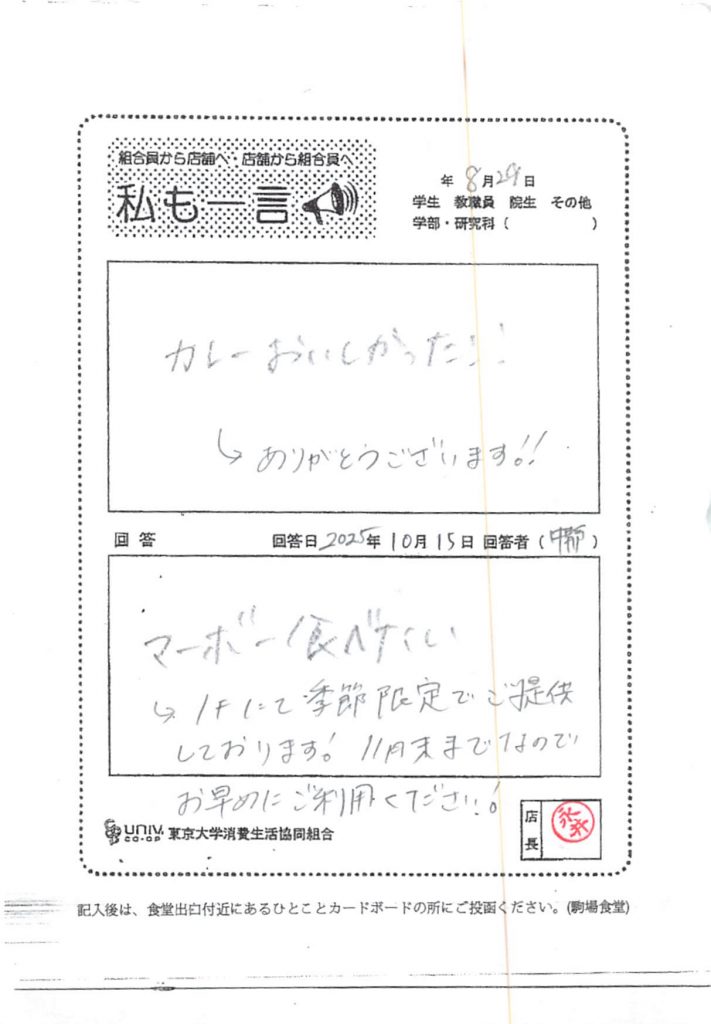 組合員から店舗へ・店舗から組合員へ
私も一言
年 8月29日
学生 教職員 院生 その他
学部・研究科( )
カレーおいしかった!!
↳ ありがとうございます!!
回答 回答日 2025年 10月 15日 回答者( )
マーボー食べたい
↳ 1Fにて季節限定でご提供
しております! 11月末までなので
お早めにご利用ください!
UNIV. CO-OP 東京大学消費生活協同組合
店長
記入後は、食堂出口付近にあるひとことカードボードの所にご投函ください。(駒場食堂)